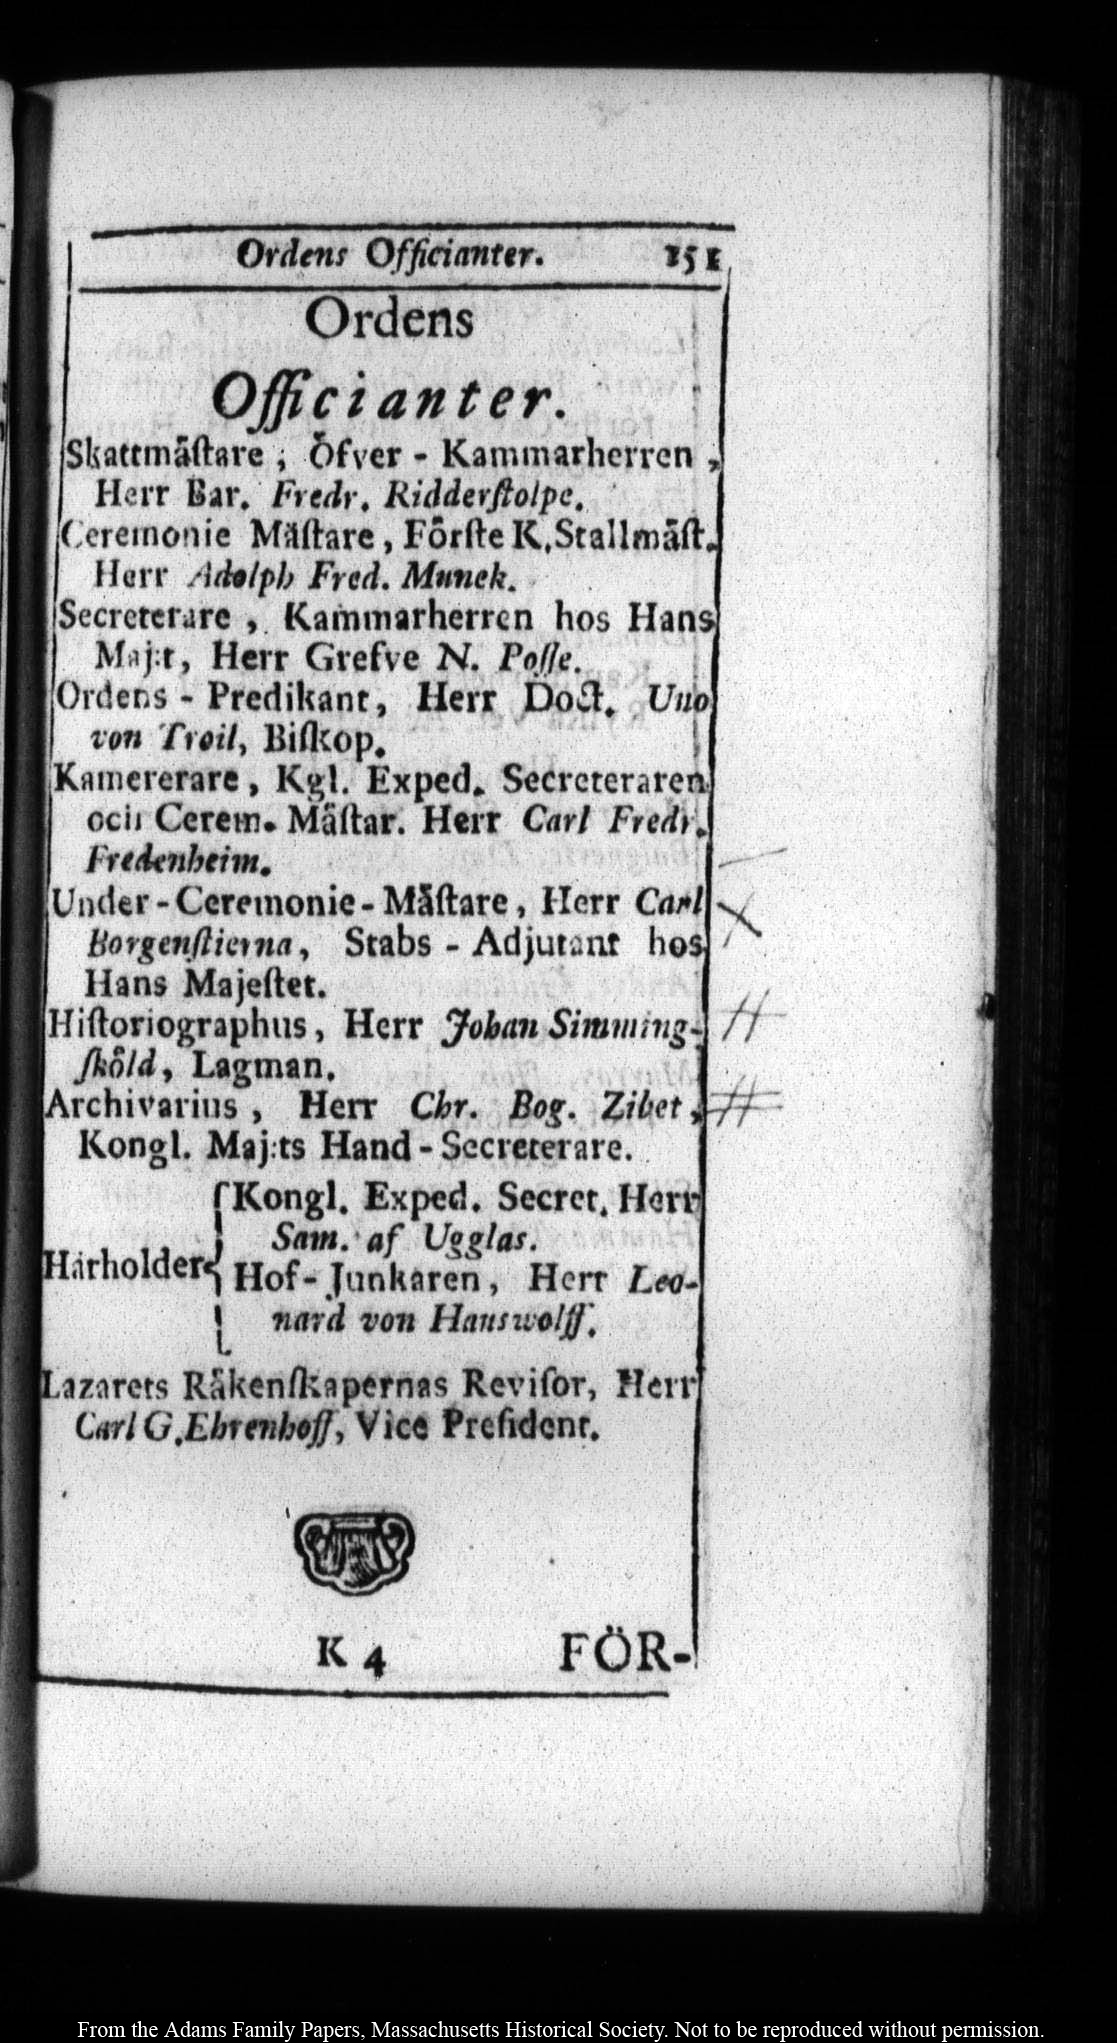 Ordens Officianter. 151
Ordens
Officianter.
Skattmäſtare, Öfver - Kammarherren,
Herr Bar. Fredr. Ridderſtolpe.
Ceremonie Mäſtare, Förſte K. Stallmäſt.
Herr Adolph Fred. Munck.
Secreterare, Kammarherren hos Hans
Maj:t, Herr Grefve N. Poſſe.
Ordens - Predikant, Herr Doct. Uno
von Troil, Biſkop.
Kamererare, Kgl. Exped. Secreteraren
och Cerem. Mäſtar. Herr Carl Fredr.
Fredenheim.
Under-Ceremonie-Mäſtare, Herr Carl
Borgenſtierna, Stabs - Adjutant hos
Hans Majeſtet.
Hiſtoriographus, Herr Johan Simming-
ſköld, Lagman.
Archivarius, Herr Chr. Bog. Zibet,
Kongl. Maj:ts Hand-Secreterare.
Kongl. Exped. Secret. Herr
Sam. af Ugglas.
Härholder
Hof-Junkaren, Herr Leo-
nard von Hauswolff.
Lazarets Räkenſkapernas Reviſor, Herr
Carl G. Ehrenhoff, Vice Preſident.
K 4 FÖR-
From the Adams Family Papers, Massachusetts Historical Society. Not to be reproduced without permission.